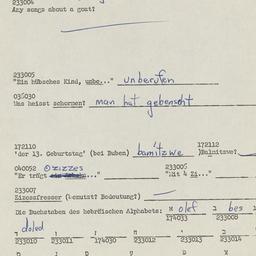 233004
Any songs about a goat?
233005
"Ein hübsches Kind, unbe..." unberufen
036030
Was heisst schornen? man hat gebenscht
172110 172112
'der 13. Geburtstag' (bei Buben) bamitzwe )Balmitzwe?
040052 233006
"Er trägt ..." ozizzes "Mit 4 Zi..."
233007
Zizesfresser (kenntst? Bedeutung?)
Die Buchstaben des hebräischen Alphabets: olef bes
174033 233008
doled
233010 233011 174030 233012 233013 233014